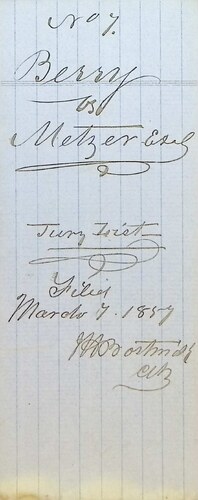 No 7.
Berry
vs
Metzer Et al
Jury List
Filed
March 7. 1857
Clk